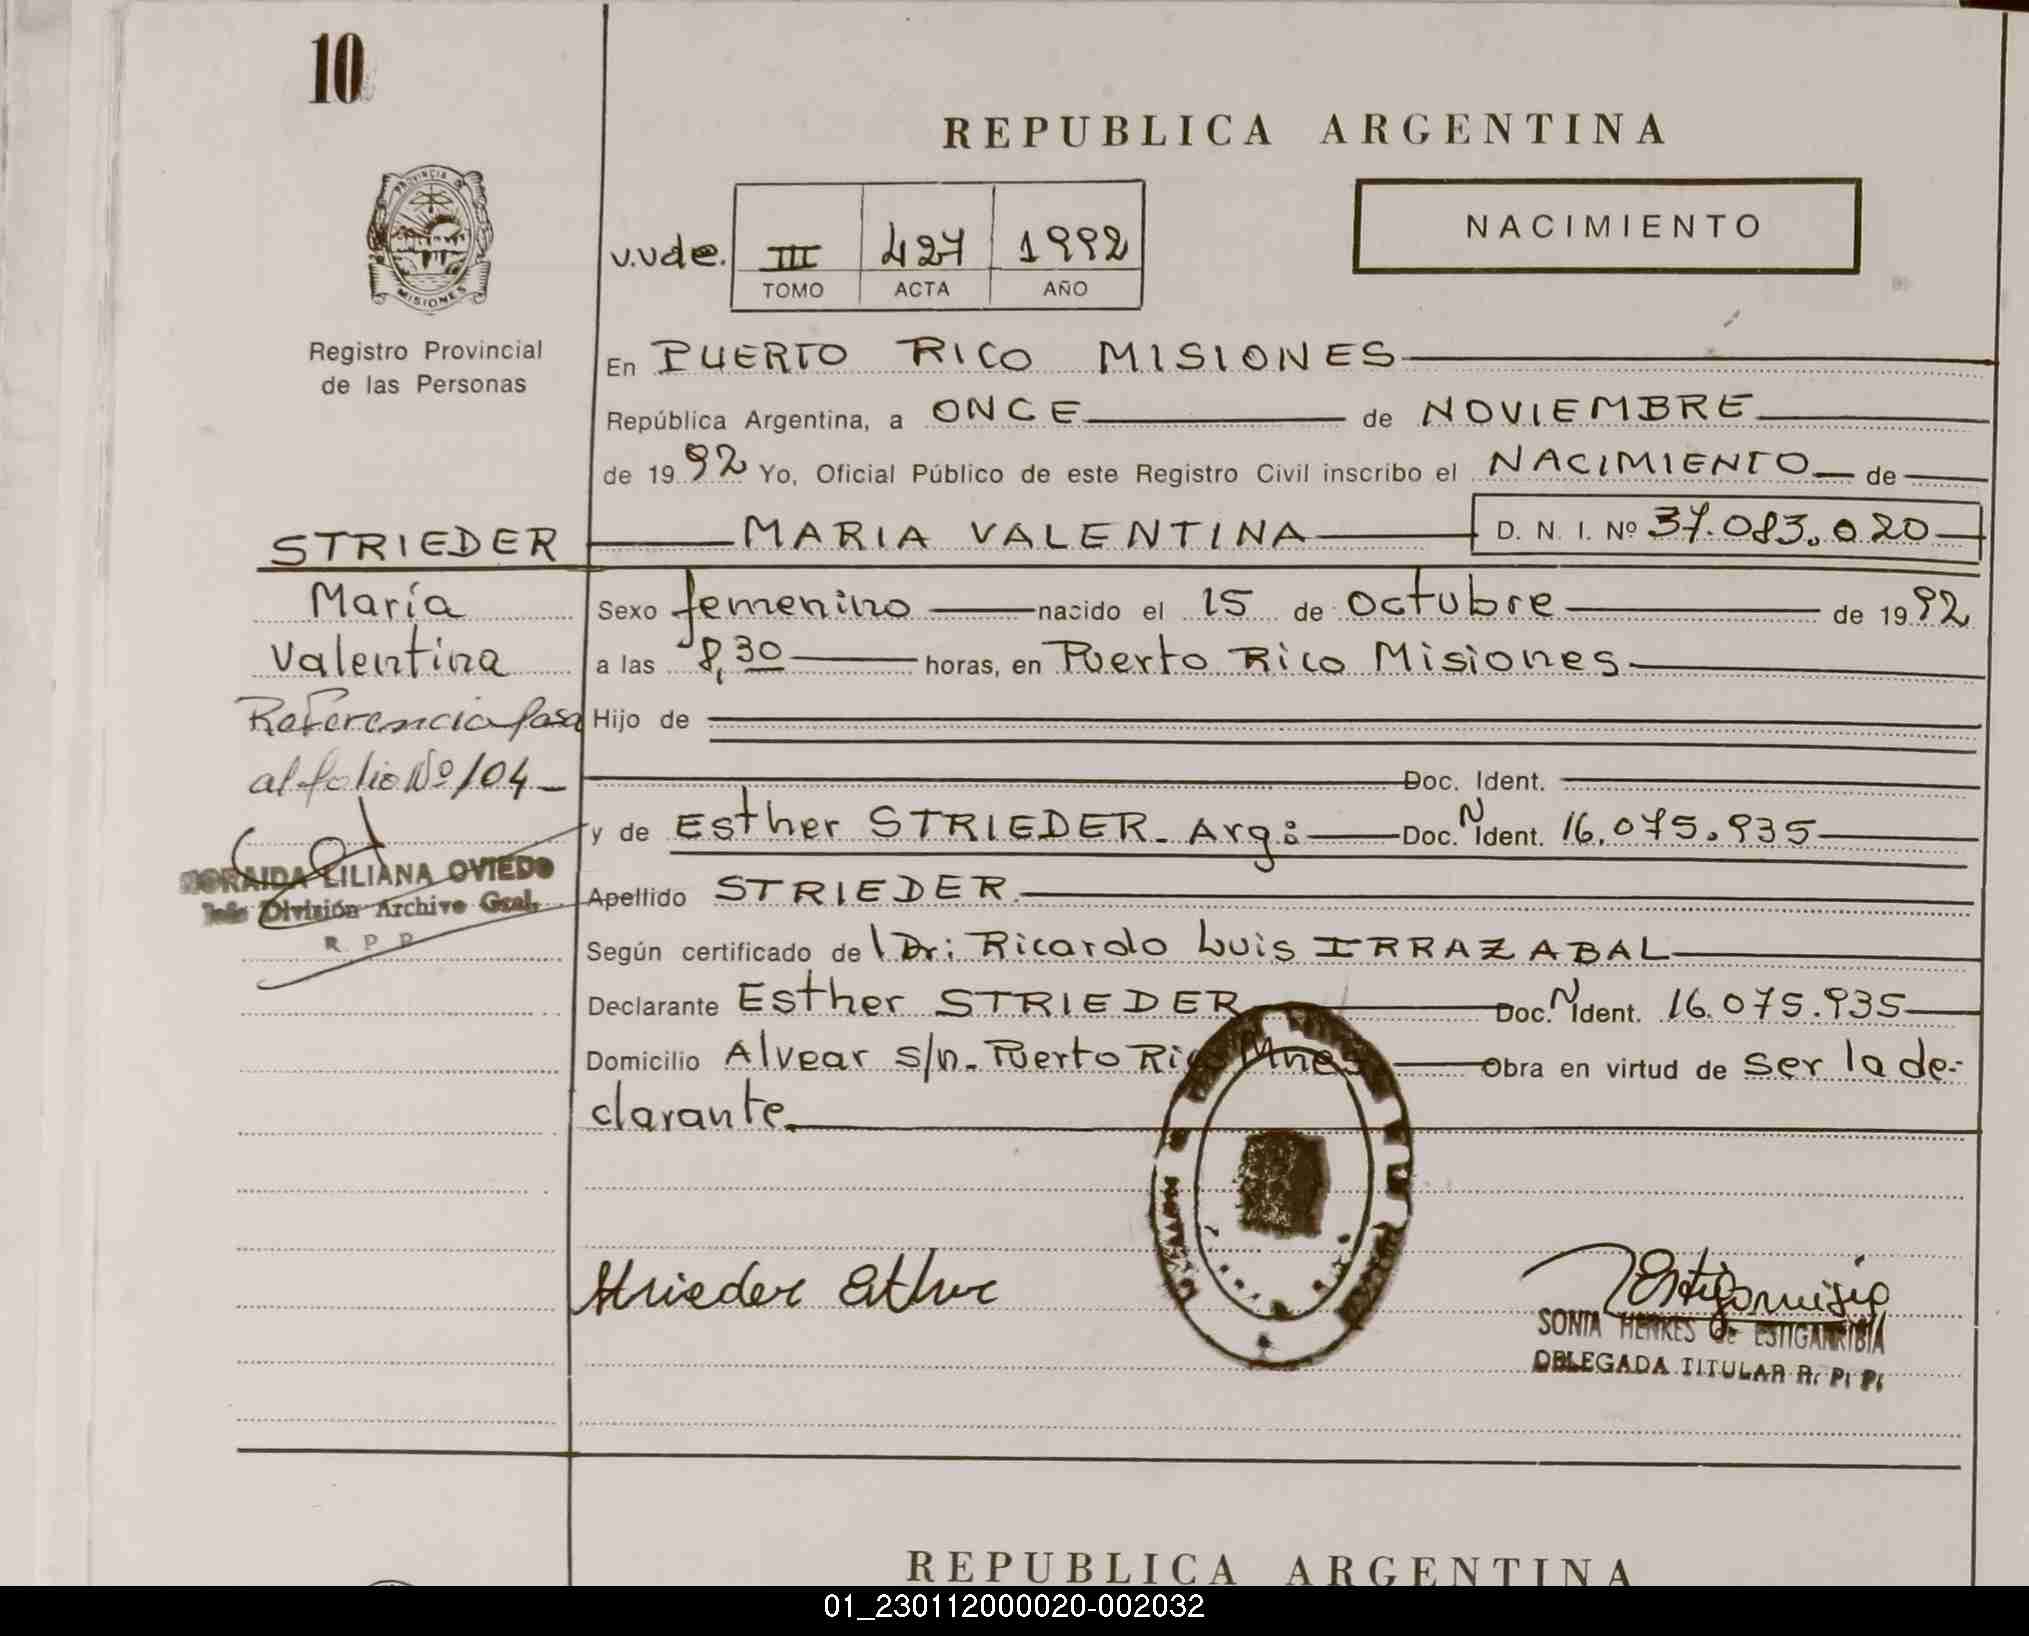 10
REPUBLICA ARGENTINA
PROVINCIA DE
MISIONES
Registro Provincial
de las Personas
v.vde. III 427 1992
TOMO ACTA AÑO
NACIMIENTO
En PUERTO RICO MISIONES
República Argentina, a ONCE de NOVIEMBRE
de 1992 Yo, Oficial Público de este Registro Civil inscribo el NACIMIENTO de
STRIEDER MARIA VALENTINA D. N. I. Nº 37.083.020
María
Valentina
Referencia pasa
al folio Nº 104
LILIANA OVIEDO
Jefe División Archivo Gral.
R P P
Sexo femenino nacido el 15 de octubre de 1992
a las 8,30 horas, en Puerto Rico Misiones
Hijo de
Doc. Ident.
y de Esther STRIEDER. Arg: Doc. N Ident. 16.075.935
Apellido STRIEDER
Según certificado de Dr: Ricardo Luis IRRAZABAL
Declarante Esther STRIEDER Doc. N Ident. 16.075.935
Domicilio Alvear s/n. Puerto Rico Mnes Obra en virtud de ser la de-
clarante.
Strieder Esther
SONIA HENKES de ESTIGARRIBIA
DELEGADA TITULAR R. P. P.
REPUBLICA ARGENTINA
01_230112000020-002032